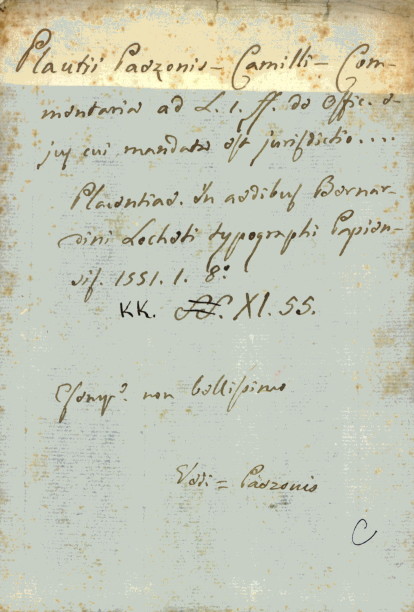 Plautii Paezonis - Camilli - Com-
mentaria ad L. 1. ff. de Offic. e-
jus cui mandata est jurisdictio....
Placentiae. In aedibus Bernar-
dini Locheti typographi Papien-
sis. 1551. 1. 8°
KK. XI. 55.
Esemp.e non bellissimo
Vedi = Paezonio
C